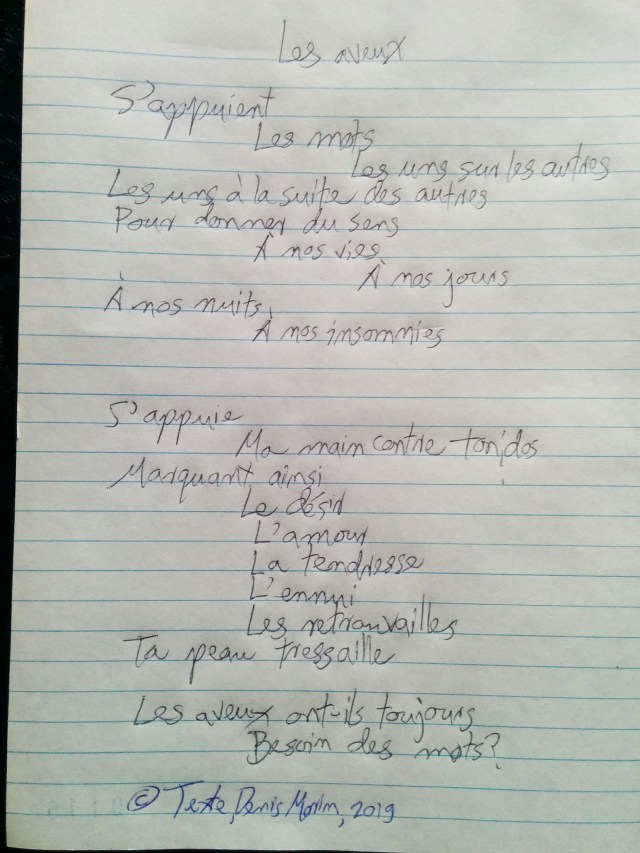 Les aveux
S'appuient
Les mots
Les uns sur les autres
Les uns à la suite des autres
Pour donner du sens
À nos vies
À nos jours
À nos nuits
À nos insomnies
S'appuie
Ma main contre ton dos
Marquant ainsi
Le désir
L'amour
La tendresse
L'ennui
Les retrouvailles
Ta peau tressaille
Les aveux ont-ils toujours
Besoin des mots?
© Texte, Denis Morin, 2019